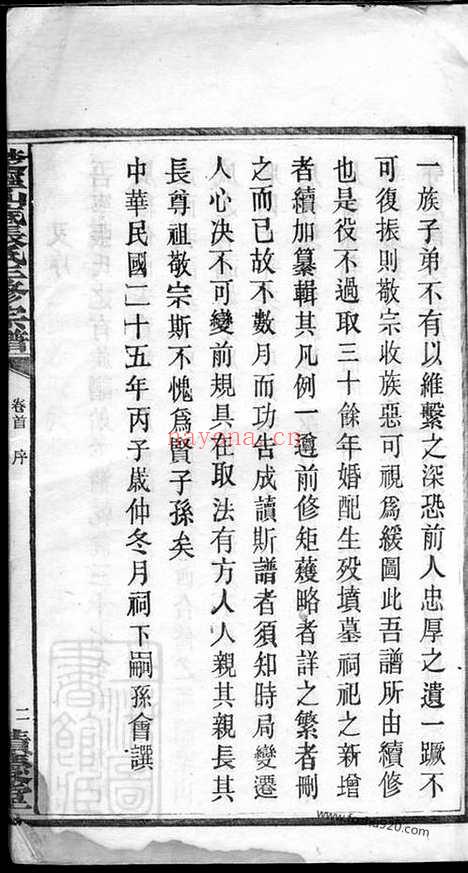 一族子弟不有以維繫之深恐前人忠厚之遺一蹶不
可復振則敬宗收族惡可視爲緩圖此吾譜所由續修
也是役不過取三十餘年婚配生殁墳墓祠祀之新增
者續加纂輯其凡例一遵前修矩蒦略者詳之繁者刪
之而已故不數月而功告成讀斯譜者須知時局變遷
人心決不可變前規具在取法有方人人親其親長其
長尊祖敬宗斯不愧爲賢子孫矣
中華民國二十五年丙子歲仲冬月祠下嗣孫會譔
張氏三修宗譜
卷首 序
二
nayona.cn